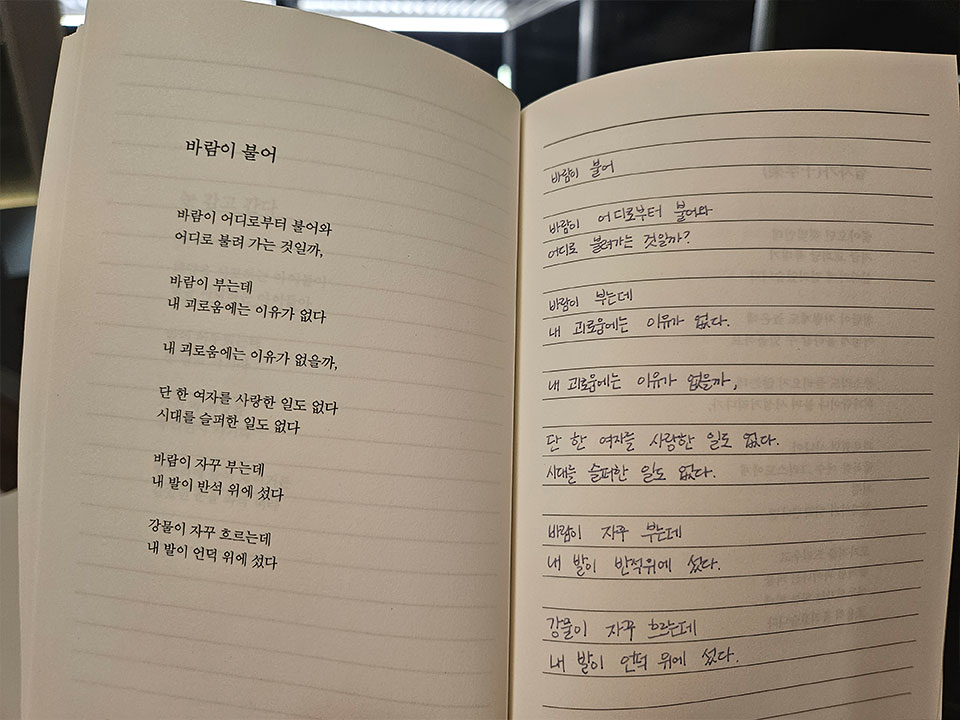 바람이 불어
바람이 어디로부터 불어와
어디로 불려 가는 것일까,
바람이 부는데
내 괴로움에는 이유가 없다
내 괴로움에는 이유가 없을까,
단 한 여자를 사랑한 일도 없다
시대를 슬퍼한 일도 없다
바람이 자꾸 부는데
내 발이 반석 위에 섰다
강물이 자꾸 흐르는데
내 발이 언덕 위에 섰다
바람이 불어
바람이 어디로부터 불어와
어디로 불려가는 것일까?
바람이 부는데
내 괴로움에는 이유가 없다.
내 괴로움에는 이유가 없을까,
단 한 여자를 사랑한 일도 없다.
시대를 슬퍼한 일도 없다.
바람이 자꾸 부는데
내 발이 반석위에 섰다.
강물이 자꾸 흐르는데
내 발이 언덕 위에 섰다.